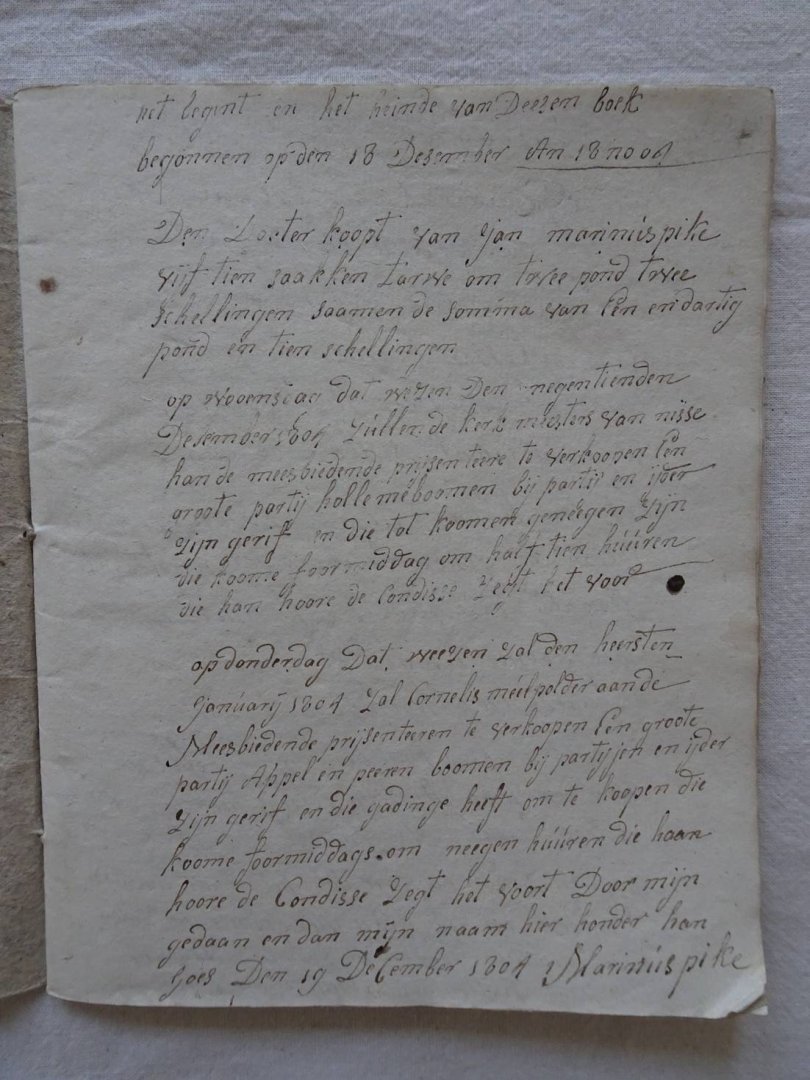 het begint en het heinde van Deezen boek
begonnen op den 18 Desember An 18 no 04
Den koopt van Jan marinus pike
vijf tien saakken tarwe om twee pond twee
schellingen saamen de somma van Een en dartig
pond en tien schellingen
op wooensdag dat wezen Den negentienden
Desember 1804 zúllen de kerk meesters van nisse
han de meesbiedende prijsenteere te verkoopen Een
groote partij hollemeboomen bij partij en ijder
zijn gerif en die tot koomen geneegen zijn
die koome foormiddag om half tien húúren
die kan hoore de Condisse zegt het voor
op donderdag Dat weezen zal den heersten
Janúarij 1804 zal Cornelis meelpolder aan de
Meesbiedende prijsenteeren te verkoopen Een groote
partij Appel en peeren boomen bij partijen en ijder
zijn gerif en die gadinge heeft om te koopen die
koome foormiddags om neegen húúren die haan
hoore de Condisse zegt het voort Door mijn
gedaan en dan mijn naam hier honder han
goes Den 19 DeCember 1804 Marinús pike